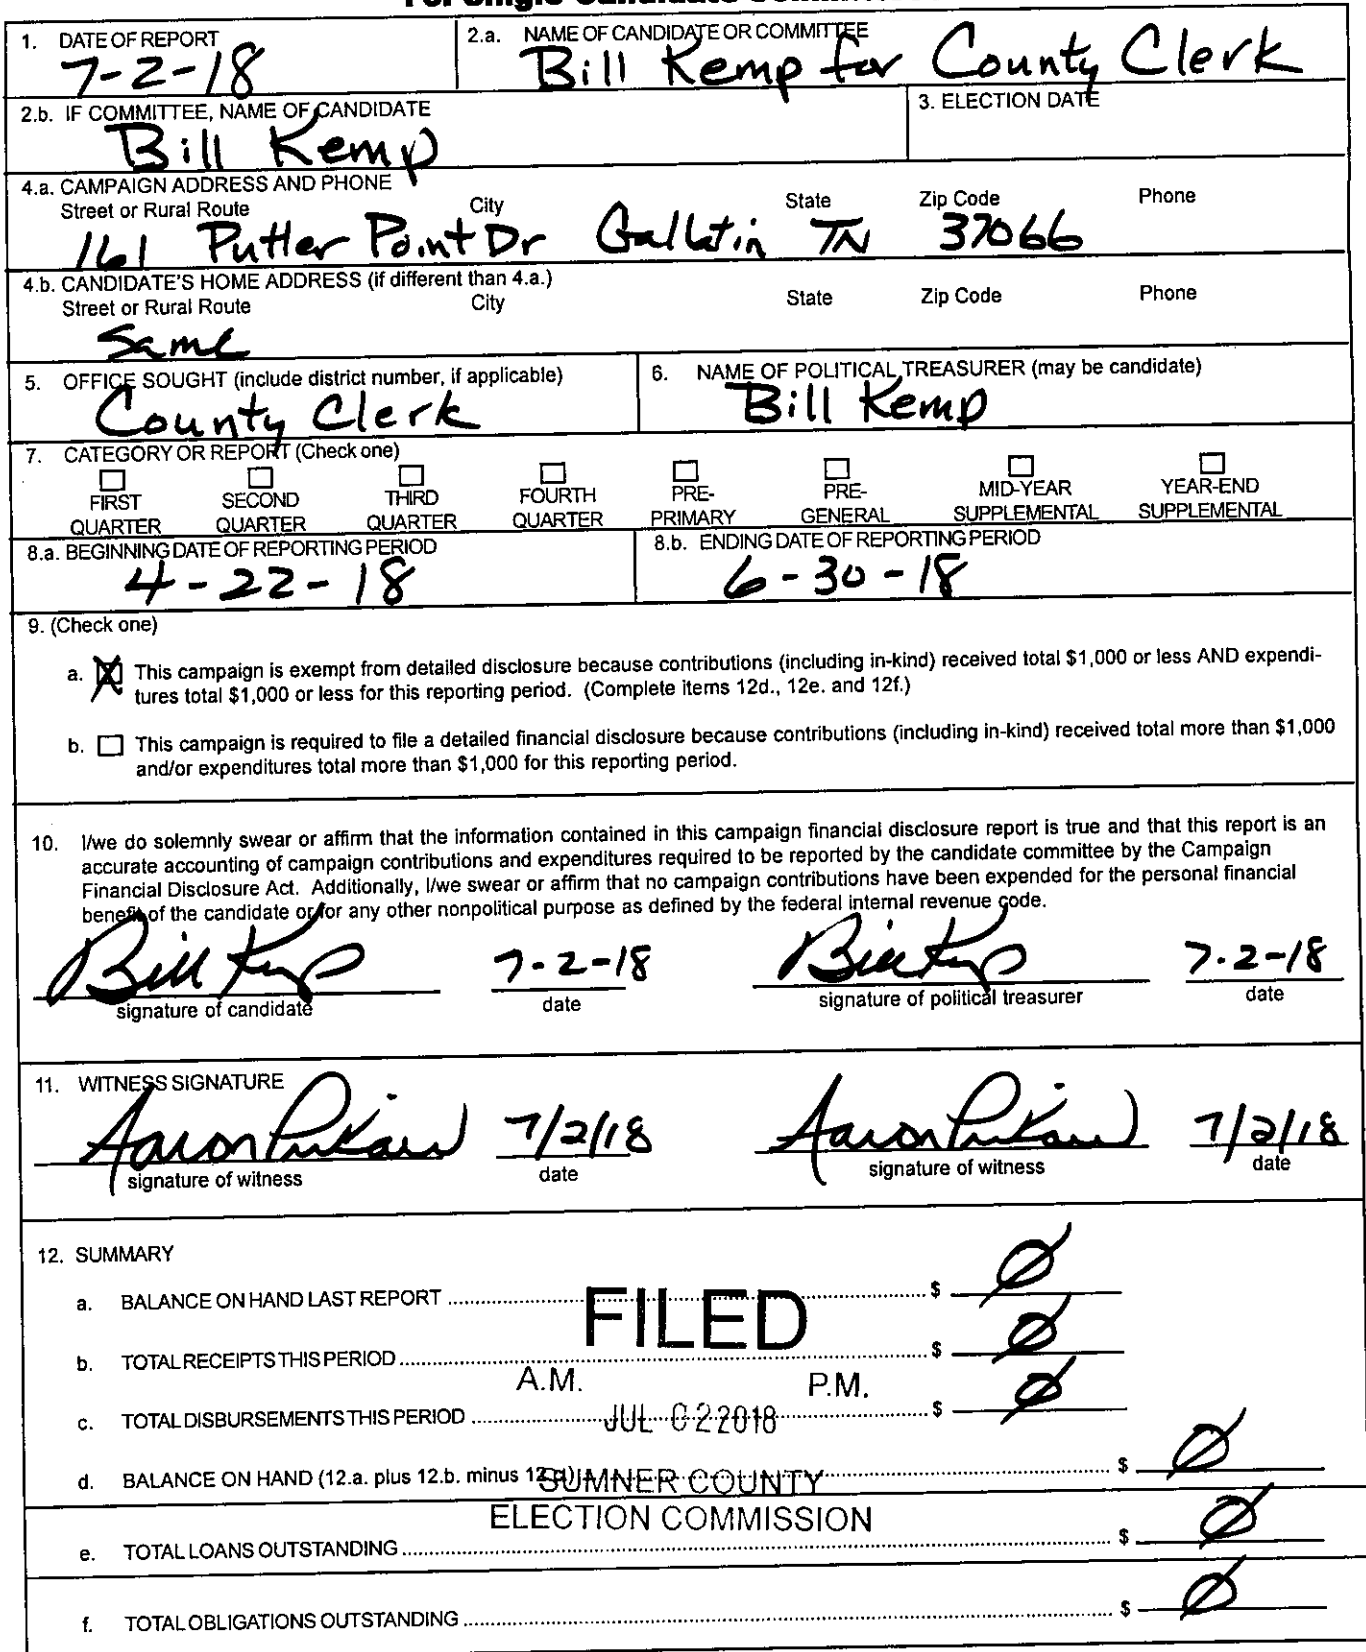 1. DATE OF REPORT
7-2-18
2.a. NAME OF CANDIDATE OR COMMITTEE
Bill Kemp for County Clerk
2.b. IF COMMITTEE, NAME OF CANDIDATE
Bill Kemp
3. ELECTION DATE
4.a. CAMPAIGN ADDRESS AND PHONE
Street or Rural Route City State Zip Code Phone
161 Putter Point Dr Gallatin TN 37066
4.b. CANDIDATE'S HOME ADDRESS (if different than 4.a.)
Street or Rural Route City State Zip Code Phone
Same
5. OFFICE SOUGHT (include district number, if applicable)
County Clerk
6. NAME OF POLITICAL TREASURER (may be candidate)
Bill Kemp
7. CATEGORY OR REPORT (Check one)
FIRST QUARTER
SECOND QUARTER
THIRD QUARTER
FOURTH QUARTER
PRE-PRIMARY
PRE-GENERAL
MID-YEAR SUPPLEMENTAL
YEAR-END SUPPLEMENTAL
8.a. BEGINNING DATE OF REPORTING PERIOD
4-22-18
8.b. ENDING DATE OF REPORTING PERIOD
6-30-18
9. (Check one)
a. X This campaign is exempt from detailed disclosure because contributions (including in-kind) received total $1,000 or less AND expendi-
tures total $1,000 or less for this reporting period. (Complete items 12d., 12e. and 12f.)
b. This campaign is required to file a detailed financial disclosure because contributions (including in-kind) received total more than $1,000
and/or expenditures total more than $1,000 for this reporting period.
10. I/we do solemnly swear or affirm that the information contained in this campaign financial disclosure report is true and that this report is an
accurate accounting of campaign contributions and expenditures required to be reported by the candidate committee by the Campaign
Financial Disclosure Act. Additionally, I/we swear or affirm that no campaign contributions have been expended for the personal financial
benefit of the candidate or for any other nonpolitical purpose as defined by the federal internal revenue code.
Bill Kemp 7-2-18 Bill Kemp 7-2-18
signature of candidate date signature of political treasurer date
11. WITNESS SIGNATURE
Aaron 7/2/18 Aaron 7/2/18
signature of witness date signature of witness date
12. SUMMARY
a. BALANCE ON HAND LAST REPORT $ Ø
FILED
b. TOTAL RECEIPTS THIS PERIOD $ Ø
A.M. P.M.
c. TOTAL DISBURSEMENTS THIS PERIOD $ Ø
JUL 02 2018
d. BALANCE ON HAND (12.a. plus 12.b. minus 12.c.) $ Ø
SUMNER COUNTY
ELECTION COMMISSION
e. TOTAL LOANS OUTSTANDING $ Ø
f. TOTAL OBLIGATIONS OUTSTANDING $ Ø